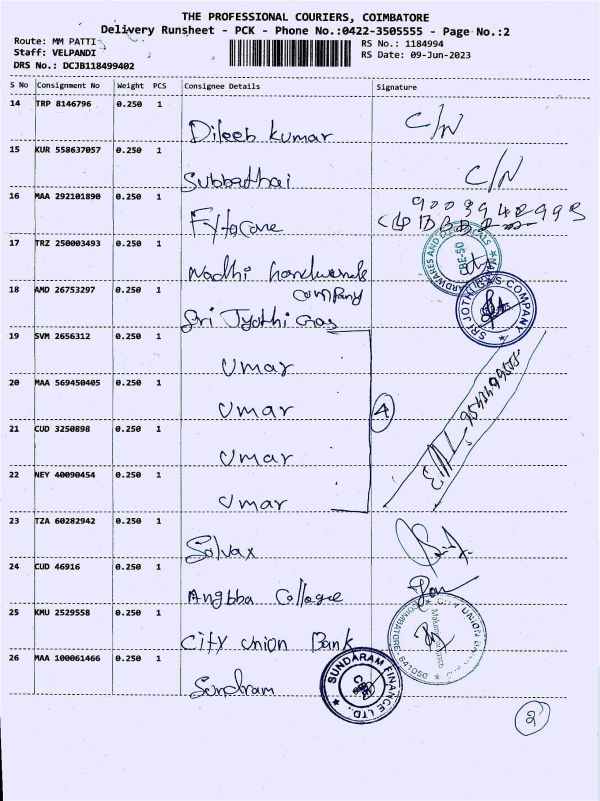 THE PROFESSIONAL COURIERS, COIMBATORE
Delivery Runsheet - PCK - Phone No.:0422-3505555 - Page No.:2
Route: MM PATTI
RS No.: 1184994
Staff: VELPANDI
RS Date: 09-Jun-2023
DRS No.: DCJB118499402
S No Consignment No Weight PCS Consignee Details Signature
14 TRP 8146796 0.250 1
Dileeb kumar C/N
15 KUR 558637057 0.250 1
Subbathai C/N
16 MAA 292101890 0.250 1
Fytocare
17 TRZ 250003493 0.250 1
Nadhi
company
18 AMD 26753297 0.250 1
Sri Jyothi Gas
SRI JOTHI GAS COMPANY
19 SVM 2656312 0.250 1
Umar
20 MAA 569450405 0.250 1
Umar 4
21 CUD 3250898 0.250 1
Umar
22 NEY 40090454 0.250 1
Umar
23 TZA 60282942 0.250 1
Solvax
24 CUD 46916 0.250 1
Angbba College
25 KMU 2529558 0.250 1
City union Bank
CITY UNION
COIMBATORE - 641050
26 MAA 100061466 0.250 1
Sundram
SUNDARAM FINANCE LTD.
2